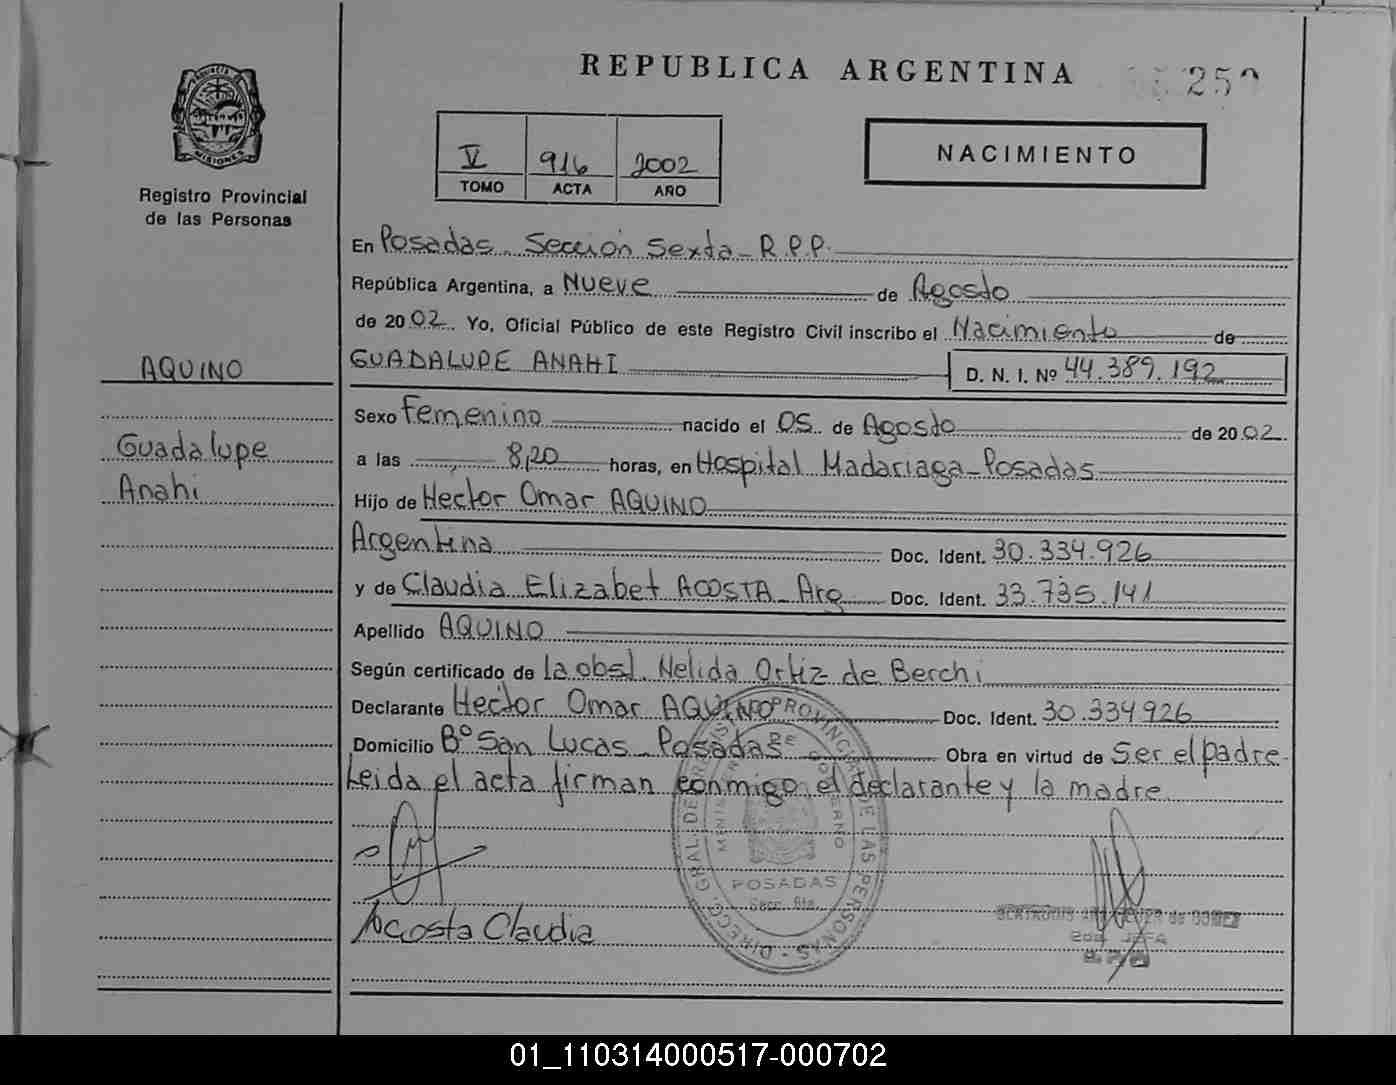 REPUBLICA ARGENTINA
250
PROVINCIA DE
MISIONES
Registro Provincial
de las Personas
V 916 2002
TOMO ACTA AÑO
NACIMIENTO
En Posadas - Sección Sexta - R.P.P.
República Argentina, a Nueve de Agosto
de 2002 Yo, Oficial Público de este Registro Civil inscribo el Nacimiento de
AQUINO
GUADALUPE ANAHI D. N. I. Nº 44.389.192
Sexo Femenino nacido el 05 de Agosto de 2002
Guadalupe
Anahi
a las 8,20 horas, en Hospital Madariaga - Posadas
Hijo de Hector Omar AQUINO
Argentina Doc. Ident. 30.334.926
y de Claudia Elizabet ACOSTA - Arg Doc. Ident. 33.735.141
Apellido AQUINO
Según certificado de la obst. Nelida Ortiz de Berchi
Declarante Hector Omar AQUINO Doc. Ident. 30.334926
Domicilio Bº San Lucas - Posadas Obra en virtud de Ser el padre.
Leida el acta firman conmigo el declarante y la madre
DIRECC. GRAL. DE PROVINCIAL DE LAS PERSONAS
POSADAS
Acosta Claudia
2da. JEFA
01_110314000517-000702